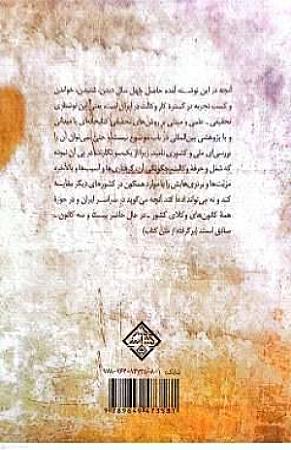 آنچه در این نوشته آمده حاصل چهل سال دیدن، شنیدن، خواندن
و کسب تجربه در گسترهٔ کار وکالت در ایران است، یعنی این نوشتاری
تحقیقی ـ علمی و مبتنی بر روش‌های تحقیقی کتابخانه‌ای یا میدانی
و یا پژوهشی بین‌المللی در باب موضوع نیست، حتی نمی‌توان آن را
بررسی‌ای ملی و کشوری نامید، زیرا از یک‌سو نگارنده در پی آن نبوده
که شغل و حرفهٔ وکالت، چگونگی آن، گرفتاری‌ها و آسیب‌ها و بالأخره
مزیّت‌ها و برتری‌هایش را با موارد همگون در کشورهای دیگر مقایسه
کند و نه می‌تواند ادعا کند آنچه می‌گوید در سراسر ایران و در حوزهٔ
همهٔ کانون‌های وکلای کشور ـ در حال حاضر بیست و سه کانون ـ
صادق است. (برگرفته از متن کتاب)
شابک:
9789649473581